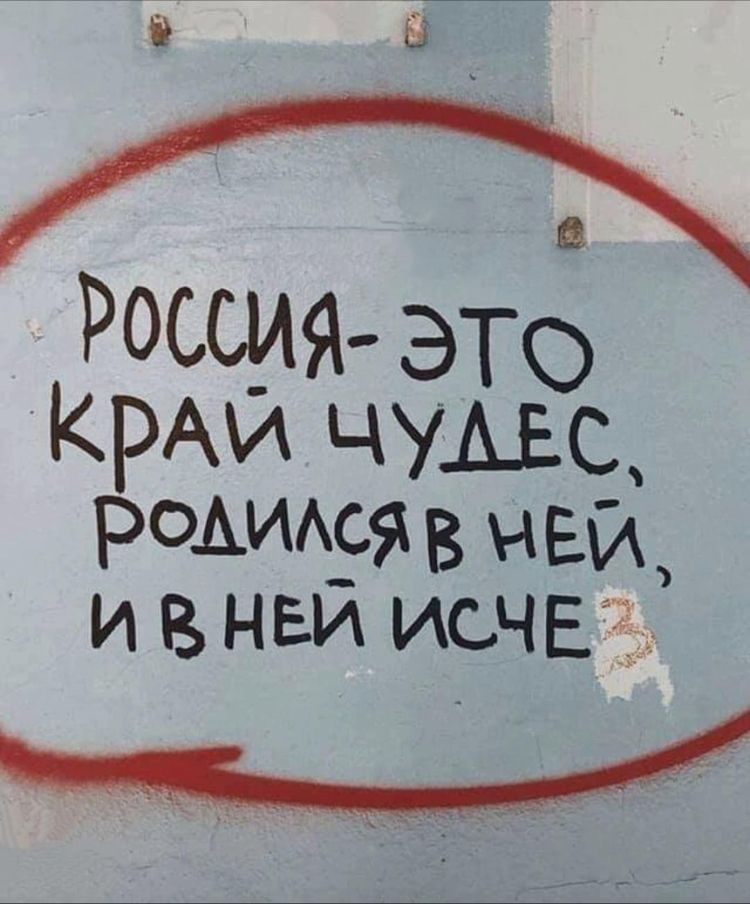 РОССИЯ- ЭТО
КРАЙ ЧУДЕС,
РОДИЛСЯ В НЕЙ,
И В НЕЙ ИСЧЕЗ